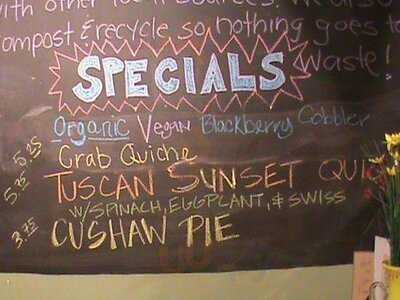 with other local sources. We also
compost & recycle so nothing goes to
waste!
SPECIALS
Organic Vegan Blackberry Cobbler
5.25 Crab Quiche
5.95 TUSCAN SUNSET QUIC
W/SPINACH, EGGPLANT, & SWISS
3.75 CUSHAW PIE